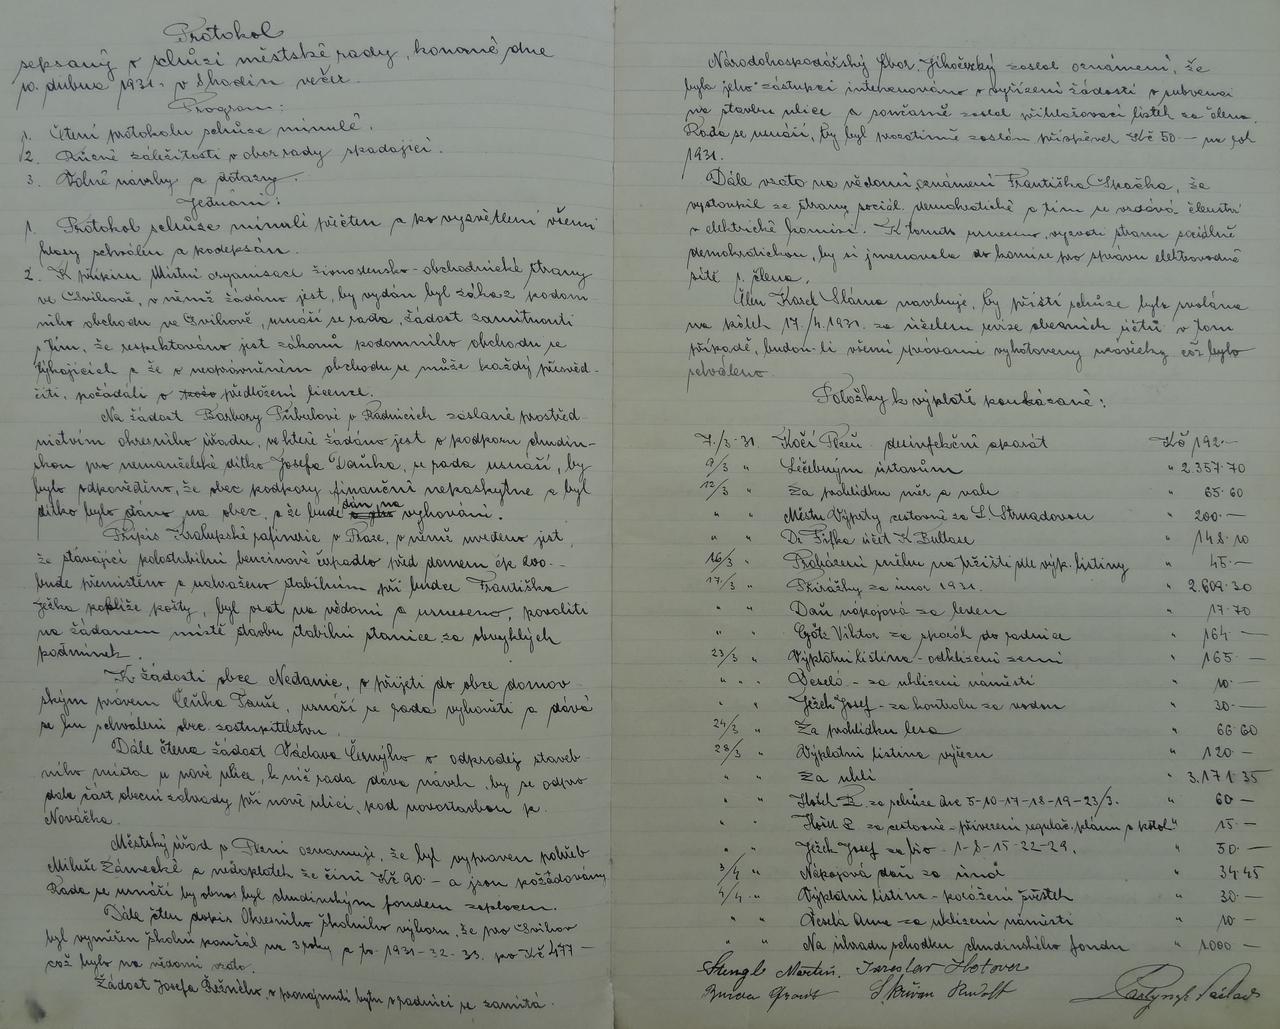 Protokol
sepsaný o schůzi městské rady, konané dne
10. dubna 1931. v 8 hodin večer.
Program:
1. Čtení protokolu schůze minulé.
2. Různé záležitosti v obor rady spadající.
3. Volné návrhy a dotazy.
Jednání:
1. Protokol schůze minulé přečten a ko vysvětlení všemi
hlasy schválen a podepsán.
2. K přípisu Místní organisace živnostensko-obchodnické strany
ve Švihově, v němž žádáno jest, by vydán byl zákaz podom-
ního obchodu ve Švihově, usnáší se rada, žádost zamítnouti
s tím, že respektováno jest zákonů podomního obchodu se
týkajících a že o neoprávněním obchodu se může každý přesvěd-
čiti, požádáli o předložení licence.
Na žádost Barbory Přibalové v Radnicích zaslané prostřed-
nictvím okresního úřadu, ve které žádáno jest o podporu chudin-
skou pro nemanželské dítko Josefa Daňka, se rada usnáší, by
bylo odpověděno, že obec podpory finanční neposkytne a byl
dítko bylo dáno na obec, a že bude dán na vychování.
Přípis Kralupské rafinerie v Praze, v němž uvedeno jest,
že stávající polostabilní benzinové čerpadlo před domem čp. 200.-
bude přemístěno a nahraženo stabilním při budce Františka
Ježka poblíže pošty, byl vzat na vědomí a usneseno, povoliti
na žádaném místě stavbu stabilní stanice za obvyklých
podmínek.
K žádosti obce Nedanic, o přijetí do obce domov-
ským právem Čeňka Touše, usnáší se rada vyhověti a dává
se ku schválení obec. zastupitelstvu.
Dále čtena žádost Václava Černýho o odprodej staveb-
ního místa u nové ulice, k níž rada dává návrh, by se odpro
dala část obecní zahrady při nové ulici, pod novostavbou p.
Nováčka.
Městský úřad v Plzni oznamuje, že byl vypraven pohřeb
Miluše Zámecké a nedoplatek že činí Kč 90.- a jsou požadovány
Rada se usnáší by obnos byl chudinským fondem zaplacen.
Dále čten dopis Okresního školního výboru, že pro Švihov
byl vyměřen školní paušál na 3 roky a to 1931-32-33. po Kč 477-
což bylo na vědomí vzato.
Žádost Josefa Řezného, o pronajmutí bytu v radnici se zamítá.
Národohospodářský sbor Jihočeský zaslal oznámení, že
bylo jeho zástupci intervenováno o vyřízení žádosti o subvenci
na stavbu ulice a současně zaslal přihlašovací lístek za člena.
Rada se usnáší, by byl prozatímně zaslán příspěvek Kč 50- na rok
1931.
Dále vzato na vědomí oznámení Františka Špačka, že
vystoupil ze strany sociál. demokratické a tím se vzdává členství
v elektrické komisi. K tomuto usneseno, vyzvati stranu sociálně
demokratickou, by si jmenovala do komise pro správu elektrovodné
sítě 1. člena.
Člen Karel Sláma navrhuje, by příští schůze byla svolána
na pátek 17./4. 1931. za účelem revise obecních účtů v tom
případě, budou-li všemi správami vyhotoveny uzávěrky což bylo
schváleno.
Položky k výplatě poukázané:
7./3-31. Kočí Plzeň desinfekční aparát Kč 192.-
9/3 " Léčebným ústavům " 2.357.70
12/3 " Za prohlídku měr a vah " 65.60
" " Městu Výprty cestovné za L. Strnadovou " 200.-
" " Dr. Fifka účet K. Bultase " 148.10
16/3 " Proházení sněhu na tržišti dle výp. listiny " 45.-
17/3 " Přirážky za únor 1931. " 2.609.30
" " Daň nápojová za leden " 17.70
" " Götz Viktor za sporák do radnice " 164.-
23/3 " Výplatní listina - odklizení zemi " 165.-
" " Veselá - za uklizení náměstí " 10.-
" " Ježek Josef - za kontrolu za vodou " 30.-
24/3 " Za prohlídku lesa " 66.60
28/3 " Výplatní listina výječn " 120.-
" " Za uhlí " 3.171.35
" " Hotel P. za schůze dne 5-10-17-18-19-23/3. " 60.-
" " Hošek P. za cestovné - přivezení regulač. plánu a kotol " 15.-
" " Ježek Josef za bio - 1-8-15-22-29. " 50.-
3/4 " Nápojová daň za únor " 34.45
4/4 " Výplatní listina - položení " 30.-
" " Veselá Anna za uklizení náměstí " 10.-
" " Na úhradu schodku chudinského fondu " 1000.-
Stengl Martin. Jaroslav Hotover
Skřivan Rudolf